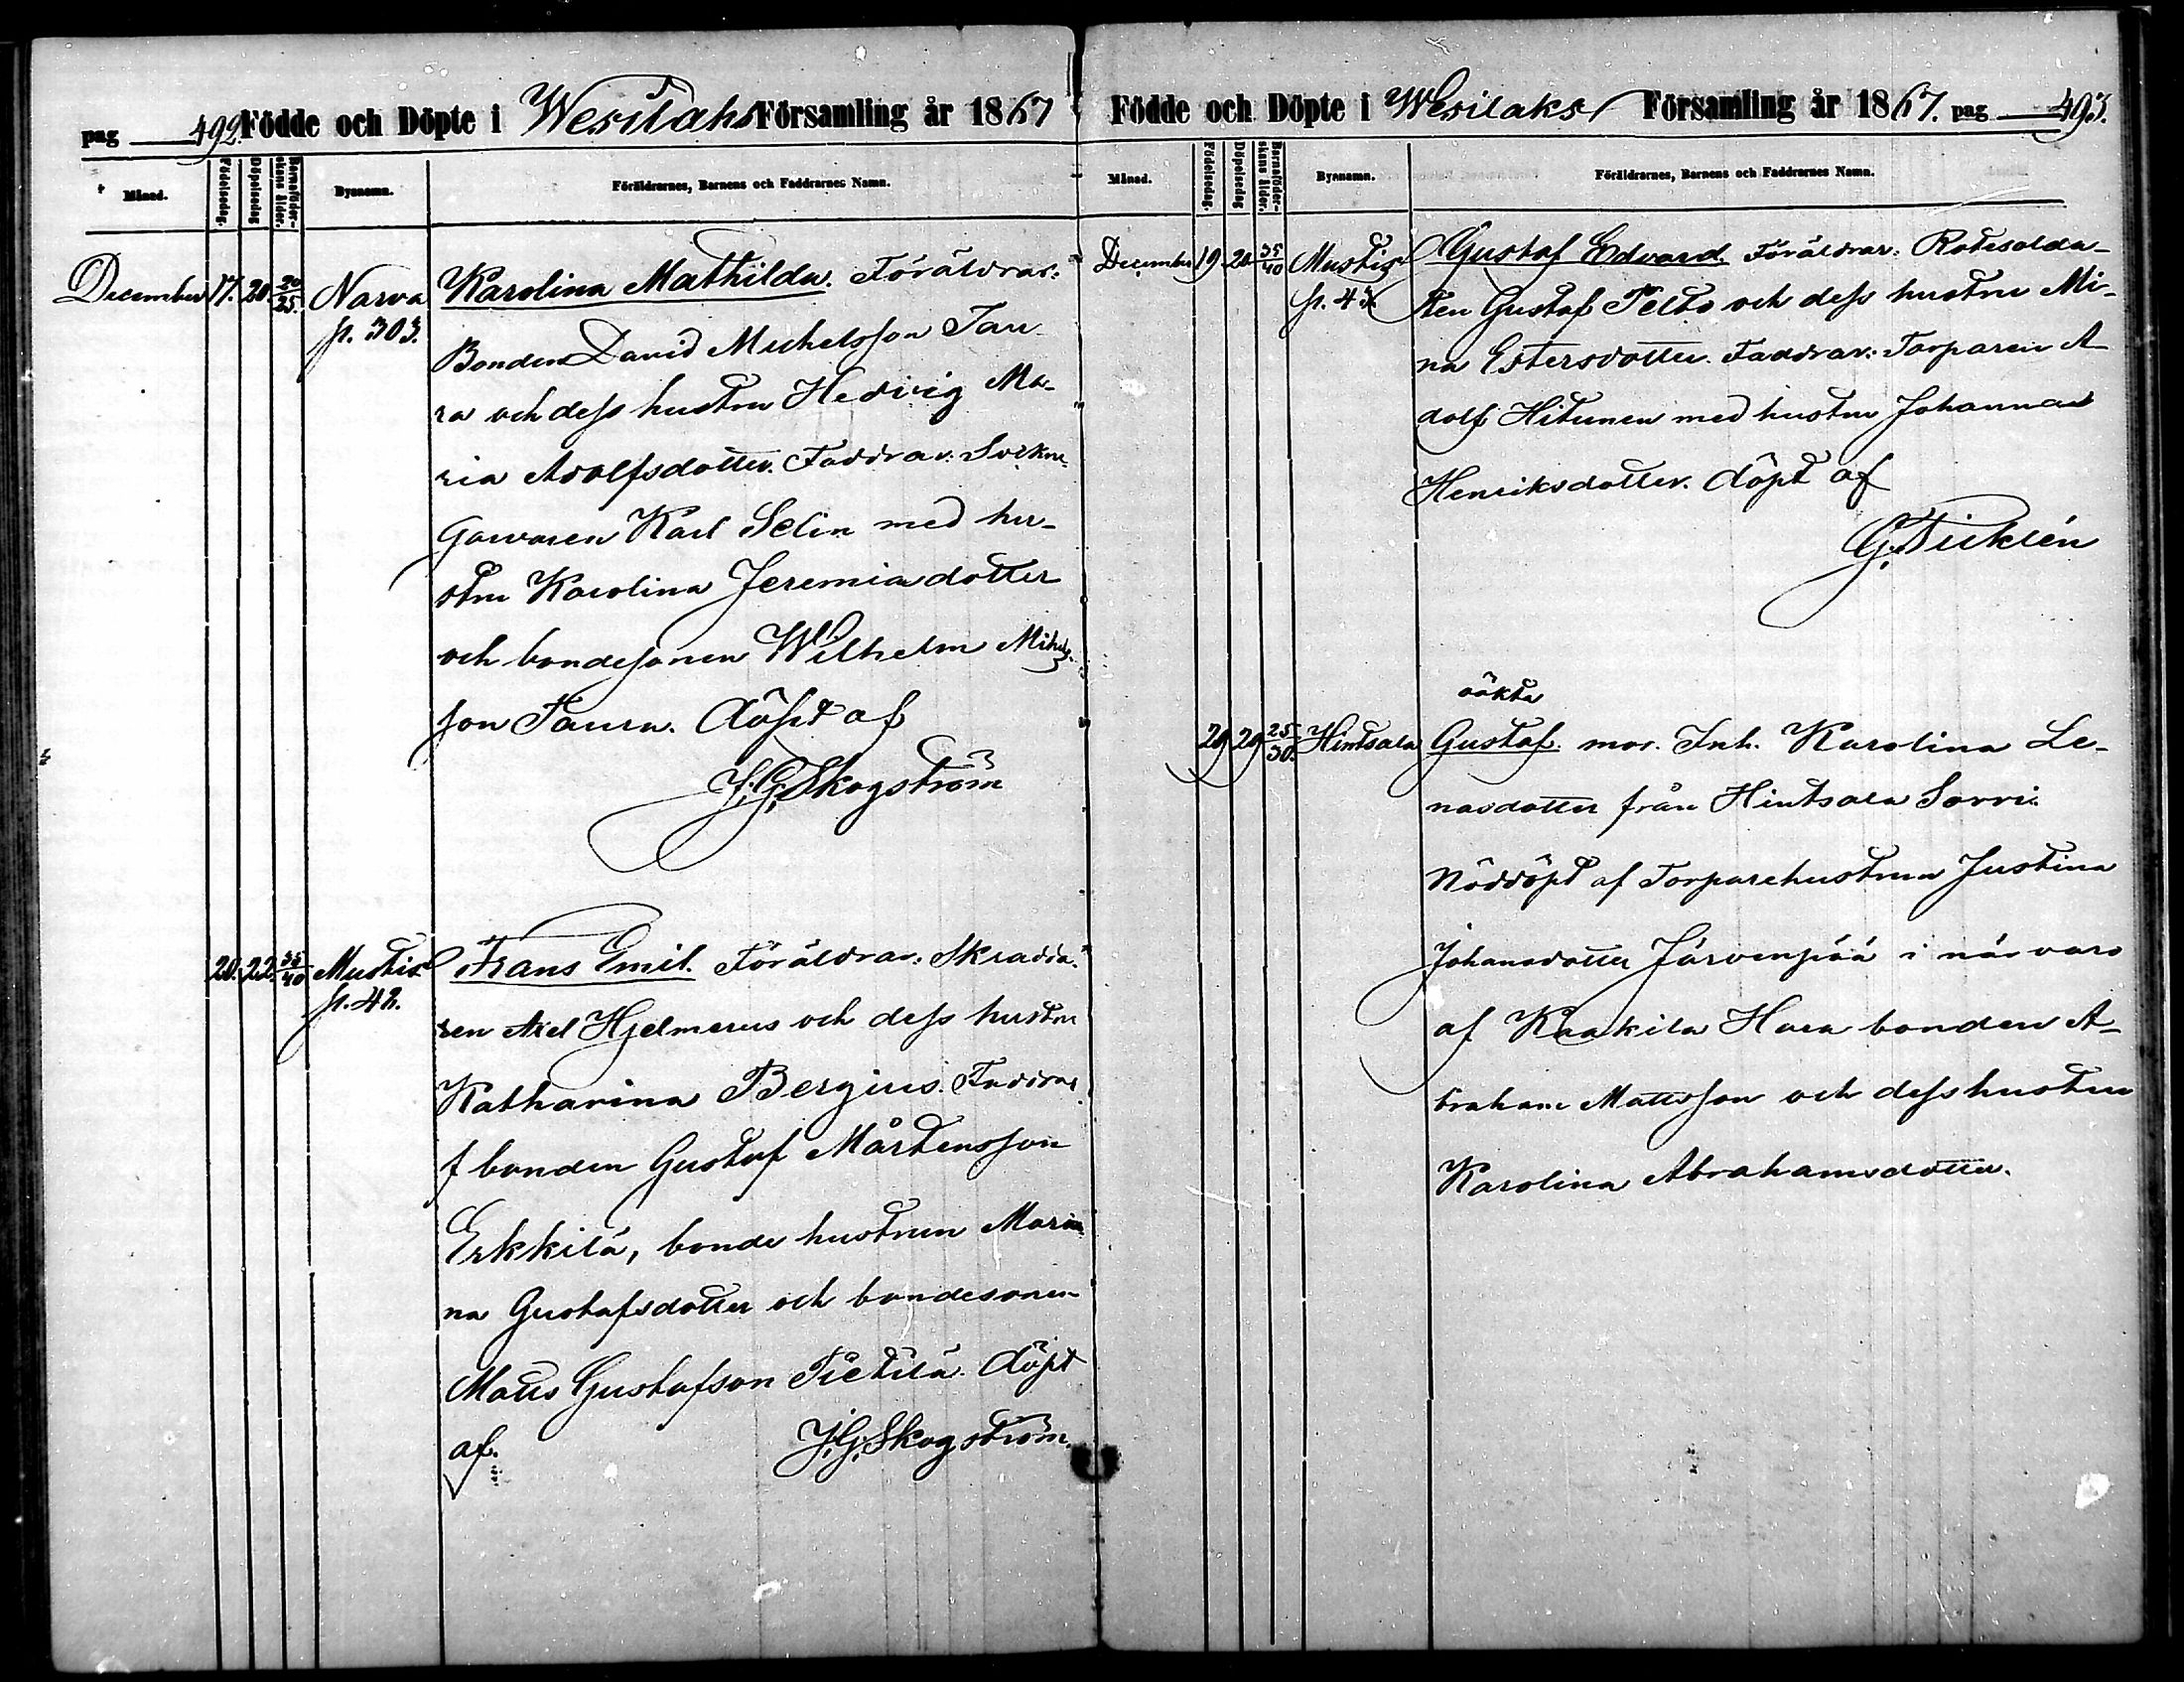 pag 492. Födde och Döpte i Wesilaks Församling år 1867
Månad. Födelsedag. Döpelsedag Barnaföderskans ålder. Bynamn. Föräldrarnes, Barnens och Faddrarnes Namn.
December 17. 20. 20/25. Narva Karolina Mathilda. Föräldrar:
p. 303.
Bonden David Michelsson Tau
ra och dess hustru Hedvig Ma-
ria Adolfsdotter. Faddrar: Sockne-
garvaren Karl Selin med hu-
stru Karolina Jeremiadotter
och bondesonen Wilhelm Mihels-
son Taura. döpt af
J. G. Skogström
20. 22. 35/40 Mustis Frans Emil. Föräldrar: Skradda-
p. 42.
ren Axel Hjelmerus och dess hustru
Katharina Bergius. Faddrar
f bonden Gustaf Mårtensson
Erkkilä, bonde hustrun Maria
na Gustafsdotter och bondesonen
Matts Gustafsson Pietilä. döpt
af. J. G. Skogström.
Födde och Döpte i Wesilaks Församling år 1867. pag 493.
Månad. Födelsedag. Döpelsedag Barnaföderskans ålder. Bynamn. Föräldrarnes, Barnens och Faddrarnes Namn.
December 19. 20. 35/40 Mustis Gustaf Edvard. Föräldrar: Rotesolda-
p. 43
ten Gustaf Pelto och dess hustru Mi-
na Estersdotter. Faddrar: Torparen A-
dolf Hitunen med hustru Johanna
Henriksdotter. döpt af
G. Dicklén
oäkta
29 29 25/30. Hintsala Gustaf. mor. Inh. Karolina Le-
nasdotter från Hintsala Sorri.
Nöddöpt af Torparehustrun Justina
Johansdotter Järvenpää i närvaro
af Kaakila Hara bonden A-
braham Mattsson och dess hustru
Karolina Abrahamsdotter.